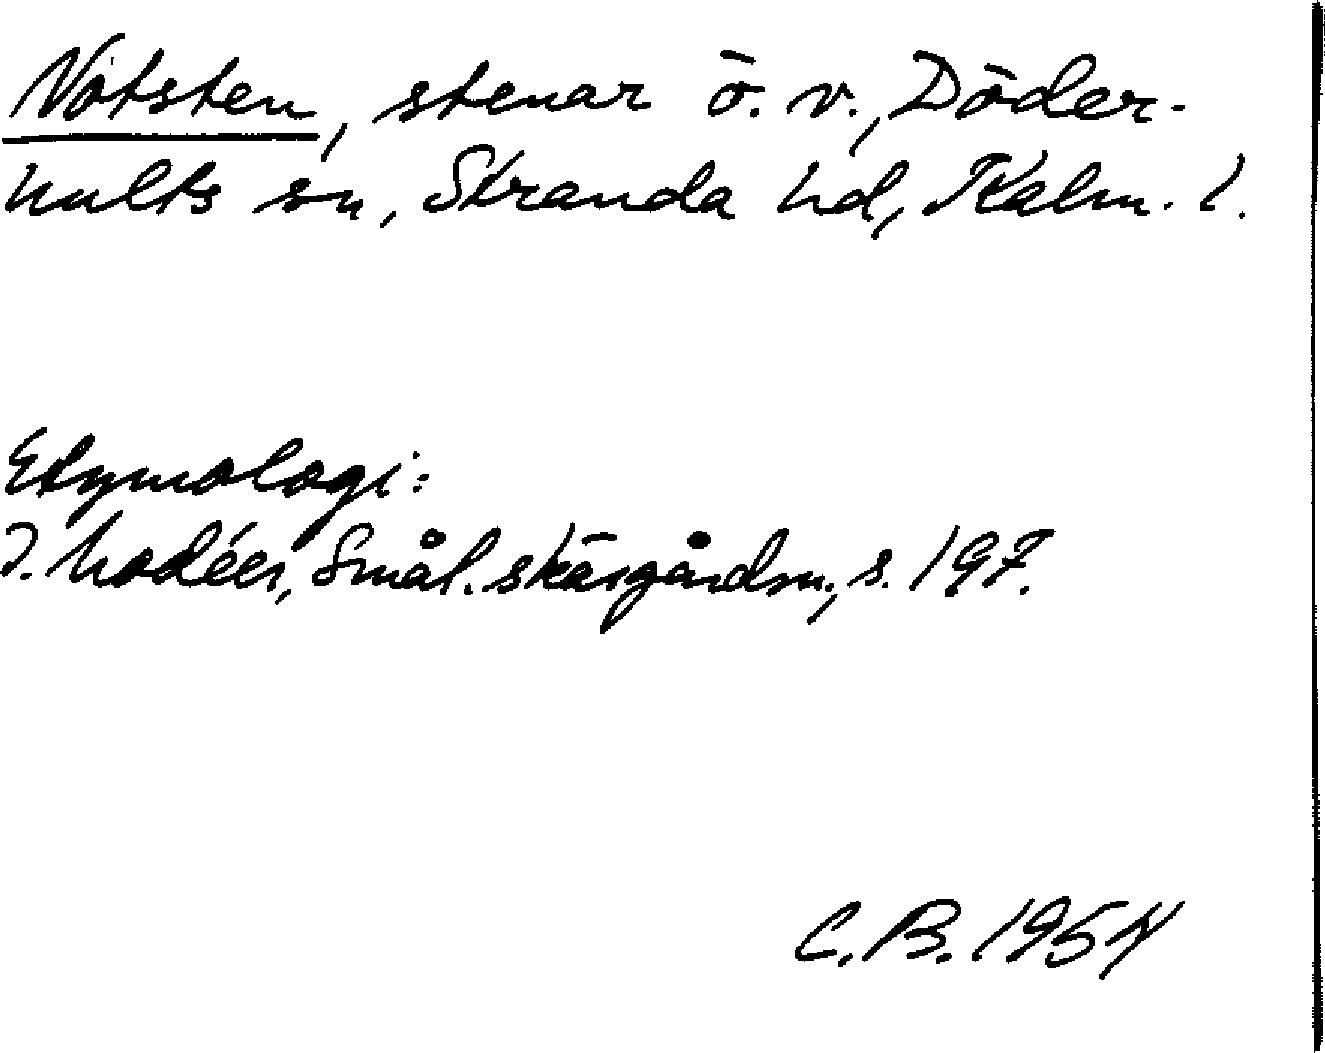 Notsten, stenar ö. v., Döder-
hults sn, Stranda hd, Kalm. l.
Etymologi:
I. Modéer, Smål. skärgårdsn., s. 197.
C. B. 1954